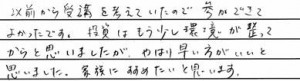 以前から受講を考えていたので参加できて
よかったです。投資はもう少し環境が整って
からと思いましたが、やはり早い方がいいと
思いました。家族にすすめたいと思います。